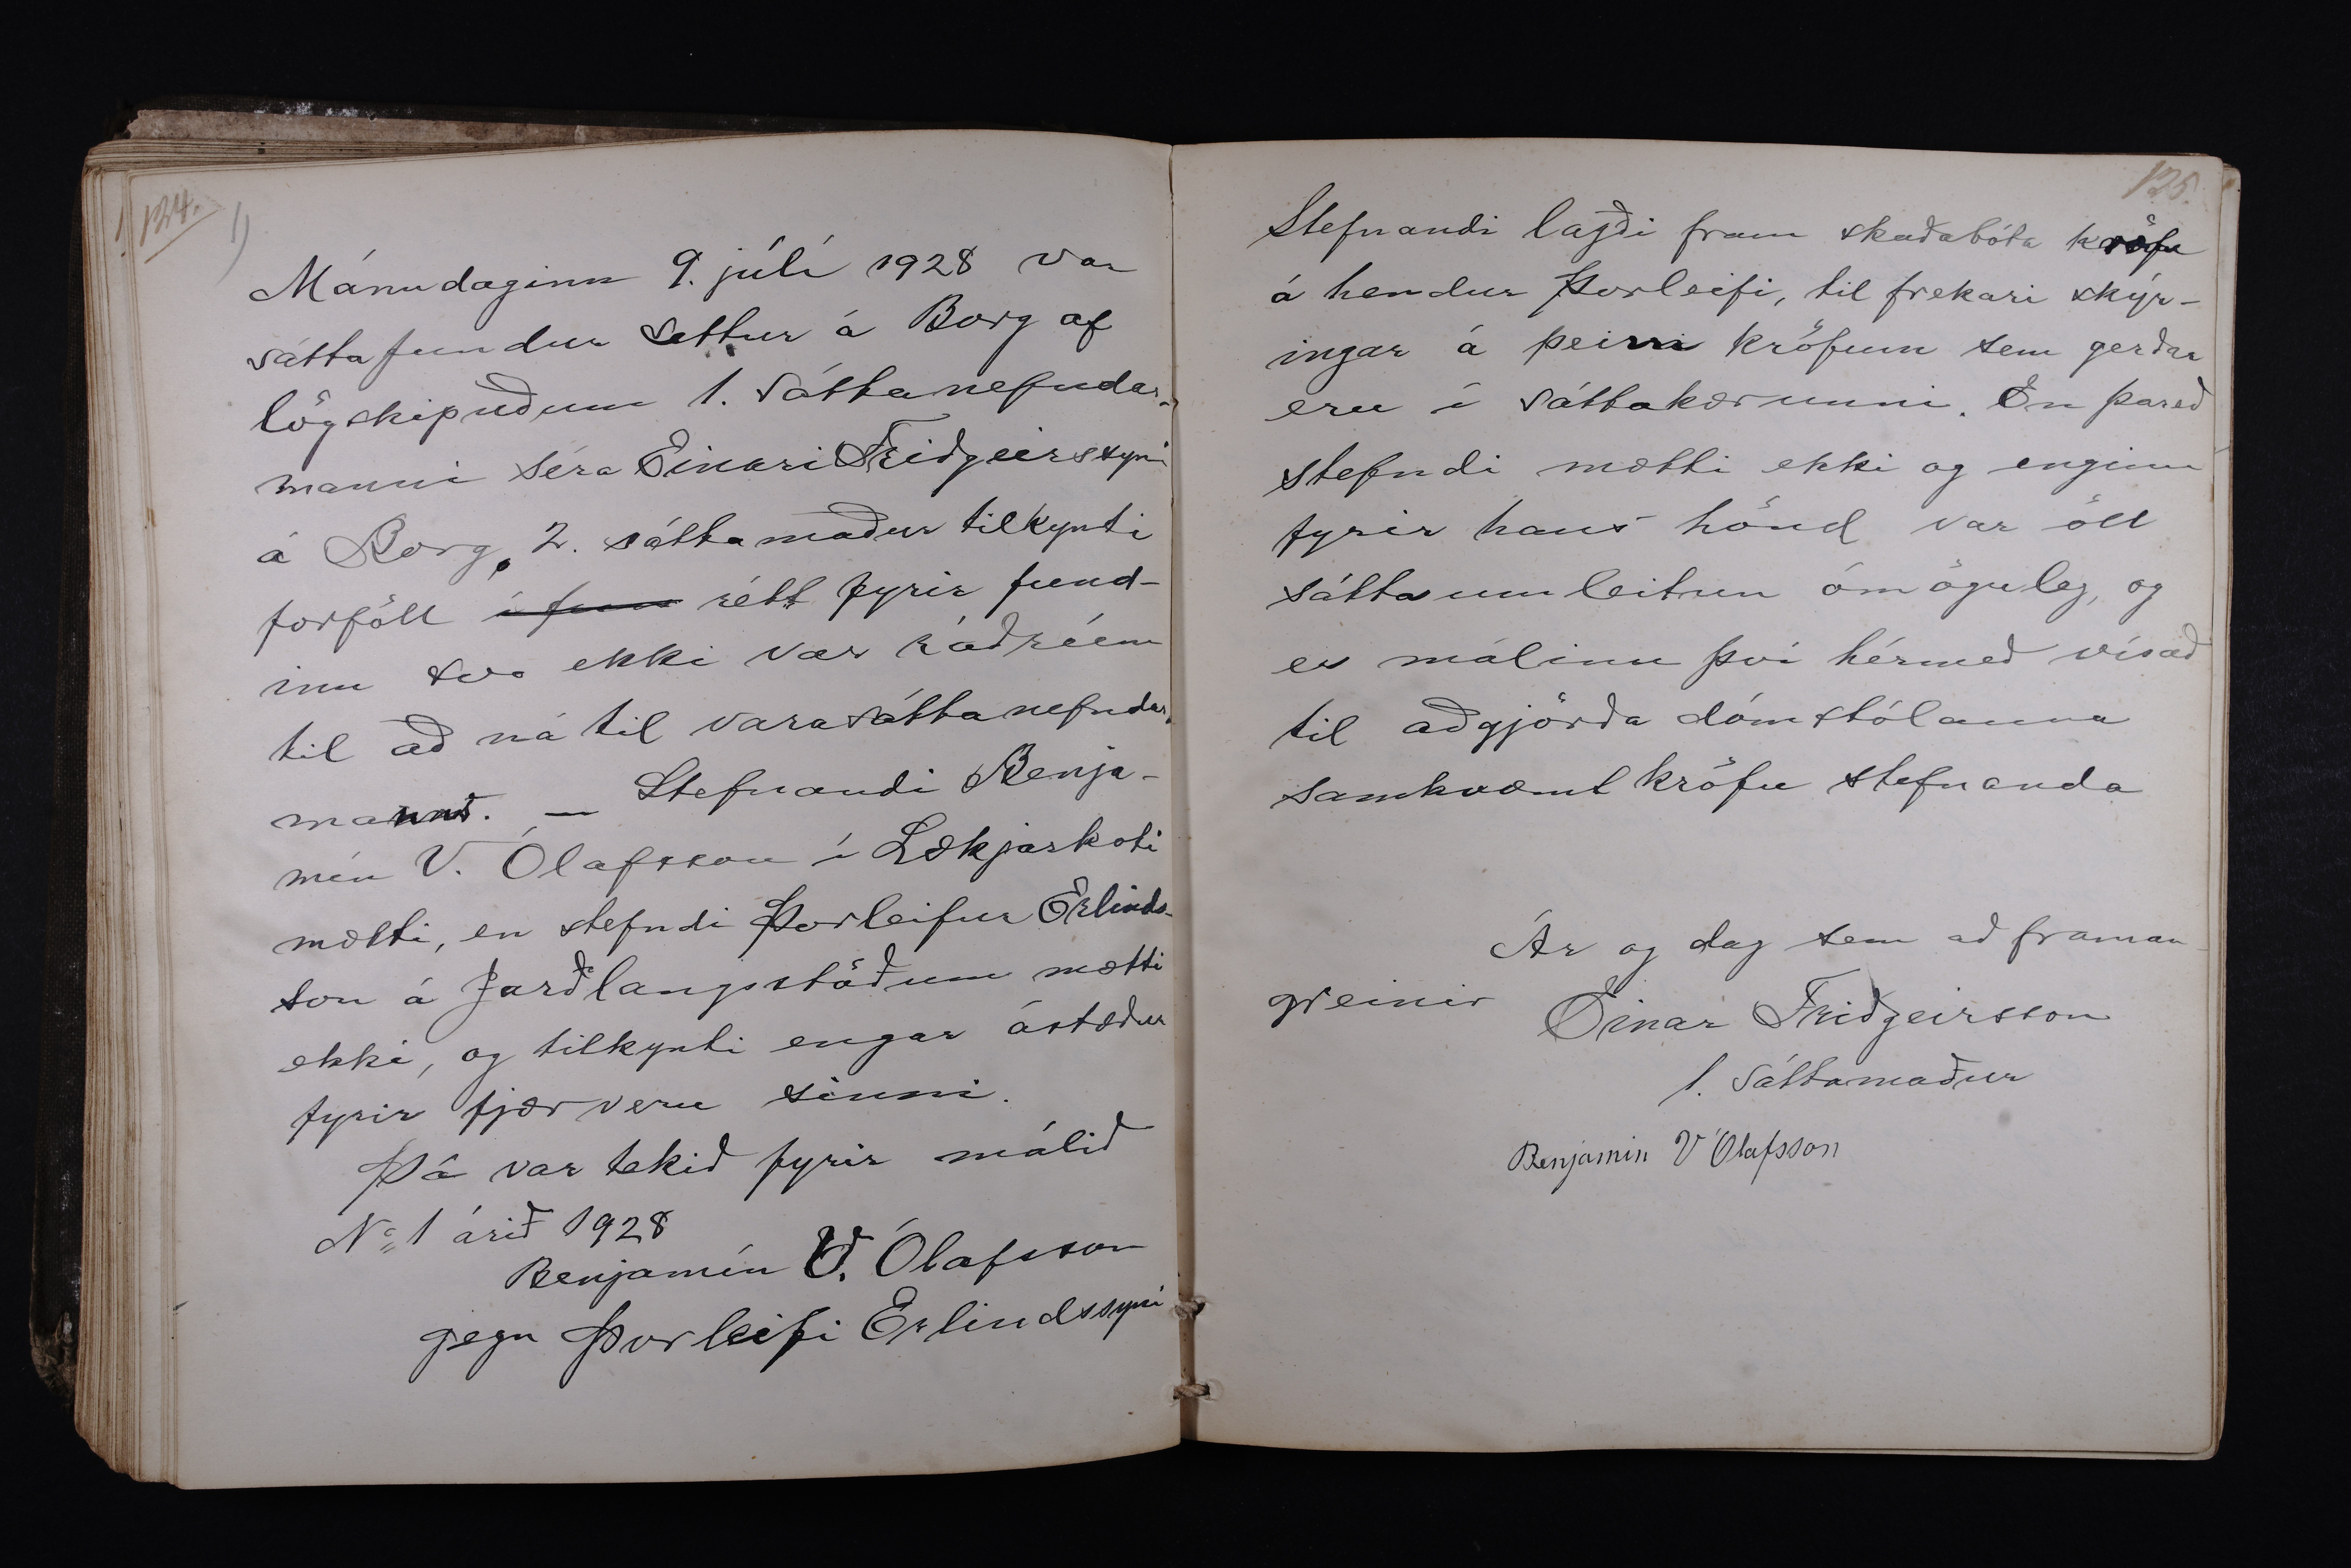 134.
1)
Mánudaginn 9. júlí 1928 var
sáttafundur settur á Borg af
lögskipuðum 1. sáttanefndar-
manni séra Einari Friðgeirssyni
á Borg, 2. sáttamaður tilkynti
forföll í fun rétt fyrir fund-
inn svo ekki var ráðrúm
til að ná til varasáttanefndar-
manns. – Stefnandi Benja-
mín V. Ólafsson í Lækjarkoti
mætti, en stefndi Þorleifur Erlinds-
son á Jarðlangsstöðum mætti
ekki, og tilkynti engar ástæður
fyrir fjærveru sinni.
Þá var tekið fyrir málið
No 1 árið 1928
Benjamín V. Ólafsson
gegn Þorleifi Erlindssyni
125.
Stefnandi lagði fram skaðabóta kröfu
á hendur Þorleifi, til frekari skýr-
ingar á þeim kröfum sem gerðar
eru í sáttakærunni. En þareð
stefndi mætti ekki og enginn
fyrir hans hönd var öll
sáttaumleitun ómöguleg, og
er málinu því hérmeð vísað
til aðgjörða dómstólanna
samkvæmt kröfu stefnanda
Ár og dag sem að framan
greinir Einar Friðgeirsson
1. sáttamaður
Benjamin V Ólafsson